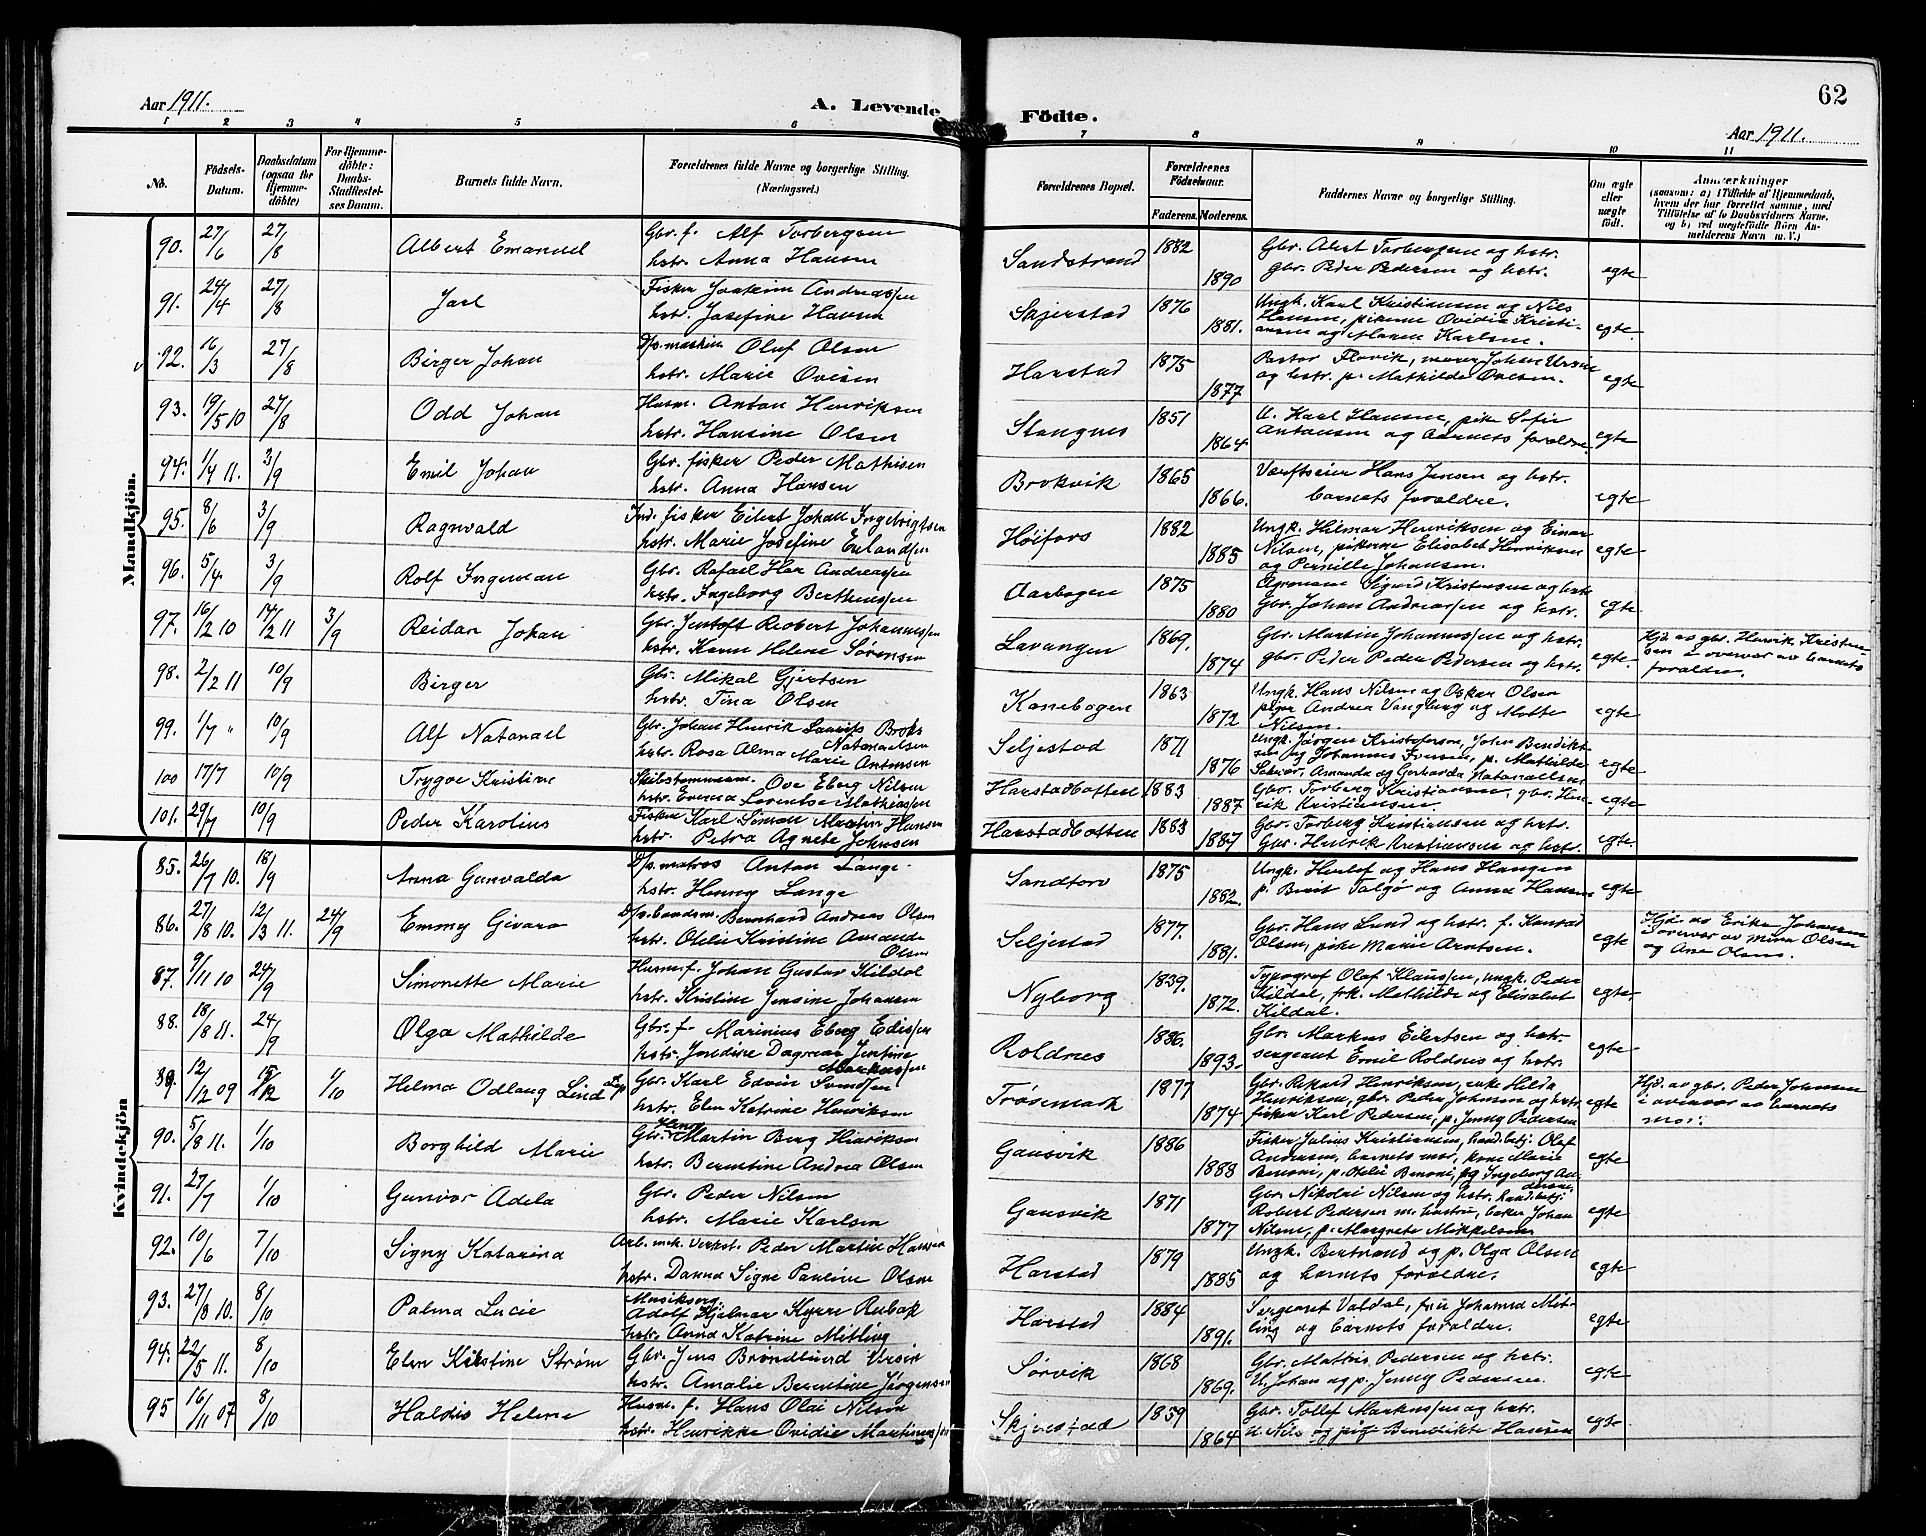 Aar 1911.
A. Levende
Födte.
62
Aar 1911.
1 2 3 4 5 6 7 8 9 10 11
No.
Födsels-Datum.
Daabsdatum (ogsaa for Hjemme-döbte)
For Hjemme-döbte: Daabs-Stadfæstel-ses Datum.
Barnets fulde Navn.
Forældrenes fulde Navne og borgerlige Stilling. (Næringsvei.)
Forældrenes Bopæl.
Forældrenes Födselsaar.
Faderens. Moderens.
Faddernes Navne og borgerlige Stilling.
Om ægte eller uægte födt.
Anmærkninger
(saasom: a) i Tilfælde af Hjemmedaab, hvem der har forrettet samme, med Tilföielse af to Daabsvidners Navne, og b) ved uægtefödte Börn Anmelderens Navn m. V.)
Mandkjön.
90. 27/6 27/8 Albert Emanuel Gbr. f. Alf Torbergsen
hstr. Anna Hansen
Sandstrand 1882 1890 Gbr. Torbergsen og hstr.
gbr. Peder Pedersen og hstr. egte
91. 24/4 27/8 Jarl Fisker Joakim Andreassen
hstr. Josefine Hansen
Skjerstad 1876 1881. Ungk. Karl Kristiansen og Nils
Hansen, pikerne Ovidia Kristi-
ansen og Maren Karlsen. egte
92. 16/3 27/8 Birger Johan D/s. maskin Oluf Olsen
hstr. Marie Ovesen
Harstad 1875 1877 Pastor Flovik, murer Johan Ursin
og hstr. p. Mathilde Ovesen. egte
93. 19/5 10 27/8 Odd Johan Husm. Anton Henriksen
hstr. Hansine Olsen
Stangnes 1851 1864 U. Karl Hansen, pike Sofie
Antonsen og barnets foraldre. egte
94. 1/4 11. 3/9 Emil Johan Gbr. fisker Peder Mathisen
hstr. Anna Hansen
Brokvik 1865 1866. Værftseier Hans Jensen og hstr.
barnets foraldre. egte
95. 8/6 3/9 Ragnvald Ind. fisker Eilert Johan Ingebrigtsen
hstr. Marie Josefine Erlandsen
Høifors 1882 1885 Ungk. Hilmar Henriksen og Einar
Nilsen, pikerne Elisabet Henriksen
og Pernille Johansen. egte
96. 5/4 3/9 Rolf Ingeman Gbr. Rafael Andreassen
hstr. Ingeborg Berthinussen
Aarbogen 1875 1880 Agronom Sigurd Kristensen og hstr
Gbr. Johan Andreassen og hstr. egte
97. 16/2 10 14/2 11 3/9 Reidar Johan Gbr. Jentoft Robert Johannessen
hstr. Karen Helene Sørensen
Lavangen 1869. 1874 Gbr. Martin Johannessen og hstr.
gbr. Peder Peder Pedersen og hstr. egte.
Hjd. av gbr. Henrik Kristen-
sen i overvær av barnets
foraldre.
98. 2/2 11 10/9 Birger Gbr. Mikal Gjertsen
hstr. Tina Olsen
Kanebogen 1863 1872 Ungk. Hans Nilsen og Oskar Olsen
piger Andrea Vangberg og Mette
Nilsen. egte
99. 1/7 " 10/9 Alf Natanael Gbr. Johan Henrik Broks
Natanaelsen
hstr. Rosa Alma Marie Antonsen
Seljestad 1871 1876 Ungk. Jørgen Kristofersen, John Bendikt-
sen og Johannes Iversen, p. Mathilde
Amanda og Gerharda Natanaelsen egte
100 17/7 10/9 Trygve Kristine Skibstømmerm. Ove Eberg Nilsen
hstr. Emma Lorentse Mathiassen
Harstadbotten 1883 1887 Gbr. Torberg Kristiansen, gbr. Hen-
rik Kristiansen. egte
101. 29/7 10/9 Peder Karolius Fisker Karl Simon Martin Hansen
hstr. Petra Agnete Johnsen
Harstadbotten 1883 1887 Gbr. Torberg Kristiansen og hstr.
Gbr. Henrik Kristiansen og hstr. egte
Kvindekjön
85. 26/7 10. 18/9 Anna Gunvalda D/s. matros Anton Lange
hstr. Henny Lange
Sandtorv 1875 1882. Ungk. Herlof og Hans Haugen
p. Berit Talgø og Anna Hansen egte
86. 27/8 10. 12/3 11. 24/9 Emmy Givara D/s. baadsm. Bernhard Andreas Olsen
hstr. Otelie Kristine Amanda
Olsen
Seljestad 1877. 1881. Gbr. Hans Lund og hstr. f. Konrad
Olsen, pike Marie Arntsen. egte
Hjd. av Erika Johansen
i overvær av Mina Olsen
og Ane Olsen.
87. 9/11 10 24/9 Simonette Marie Husm. f. Johan Gustav Kildal
hstr. Kristine Jensine Johansen
Nyborg 1839. 1872. Typograf Olaf Klaussen, ungk. Peder
Kildal, frk. Mathilde og Elisabet
Kildal. egte.
88. 18/8 11. 24/9 Olga Mathilde Gbr. f. Marinius Eberg Edissen
hstr. Dagmar Jentine
Markussen
Roldnes 1886. 1893. Gbr. Markus Eilertsen og hstr.
sergeant Emil Roldnes og hstr. egte
89. 12/12 09 1/10 Helma Odlaug Gbr. Karl Edvin Svendsen
hstr. Elen Katrine Henriksen
Trøsemark 1877 1874 Gbr. Rikard Henriksen, enke Hilda
Henriksen, gbr. Peder Johnsen og hstr.
fisker Karl Pedersen, p. Jenny Pedersen egte
Hjd. av gbr. Peder Johnsen
i overvær av barnets
mor.
90. 5/8 11. 1/10 Borghild Marie Gbr. Martin Berg Hinriksen
hstr. Berntine Andrea Olsen
Gansvik 1886 1888 Fisker Julius Kristiansen, hand.betj. Olaf
Andersen, barnets mor, kone Marie
Benoni, p. Otelie Benoni, pg Ingeborg An-
dersen. egte
91. 27/7 1/10 Gunvor Adela Gbr. Peder Nilsen
hstr. Marie Karlsen
Gansvik 1871 1877 Gbr. Nikolai Nilsen og hstr. hand.betj.
Robert Pedersen m. hustru, baker Johan
Nilsen, p. Margrete Mikkelsen egte
92. 10/6 7/10 Signy Katarina Arb. mek. verkst. Peder Martin Hansen
hstr. Danna Signe Pauline Olsen
Harstad 1879 1885 Ungk. Bertrand og p. Olga Olsen
og barnets foraldre. egte
93. 27/8 10. 8/10 Palma Lucie Musikserg.
Adolf Hjalmar Kyrre Rubak
hstr. Anna Katrine Mitling
Harstad 1884 1891. Sergeant Valdal, frue Johanna Mit-
ling og barnets foraldre. egte
94. 22/5 11. 8/10 Elen Kirstine Strøm Gbr. Jens Brøndlund Ursin
hstr. Amalie Berntine Jørgensen
Sørvik 1868 1869. Gbr. Mathis Pedersen og hstr.
U. Johan og p. Jenny Pedersen. egte
95 16/11 07 8/10 Haldis Helene Husm. f. Hans Olai Nilsen
hstr. Henrikke Ovidie Martinussen
Skjerstad 1859 1864 Gbr. Tollef Markussen og hstr.
U. Nils og pige Benedikte Hansen egte